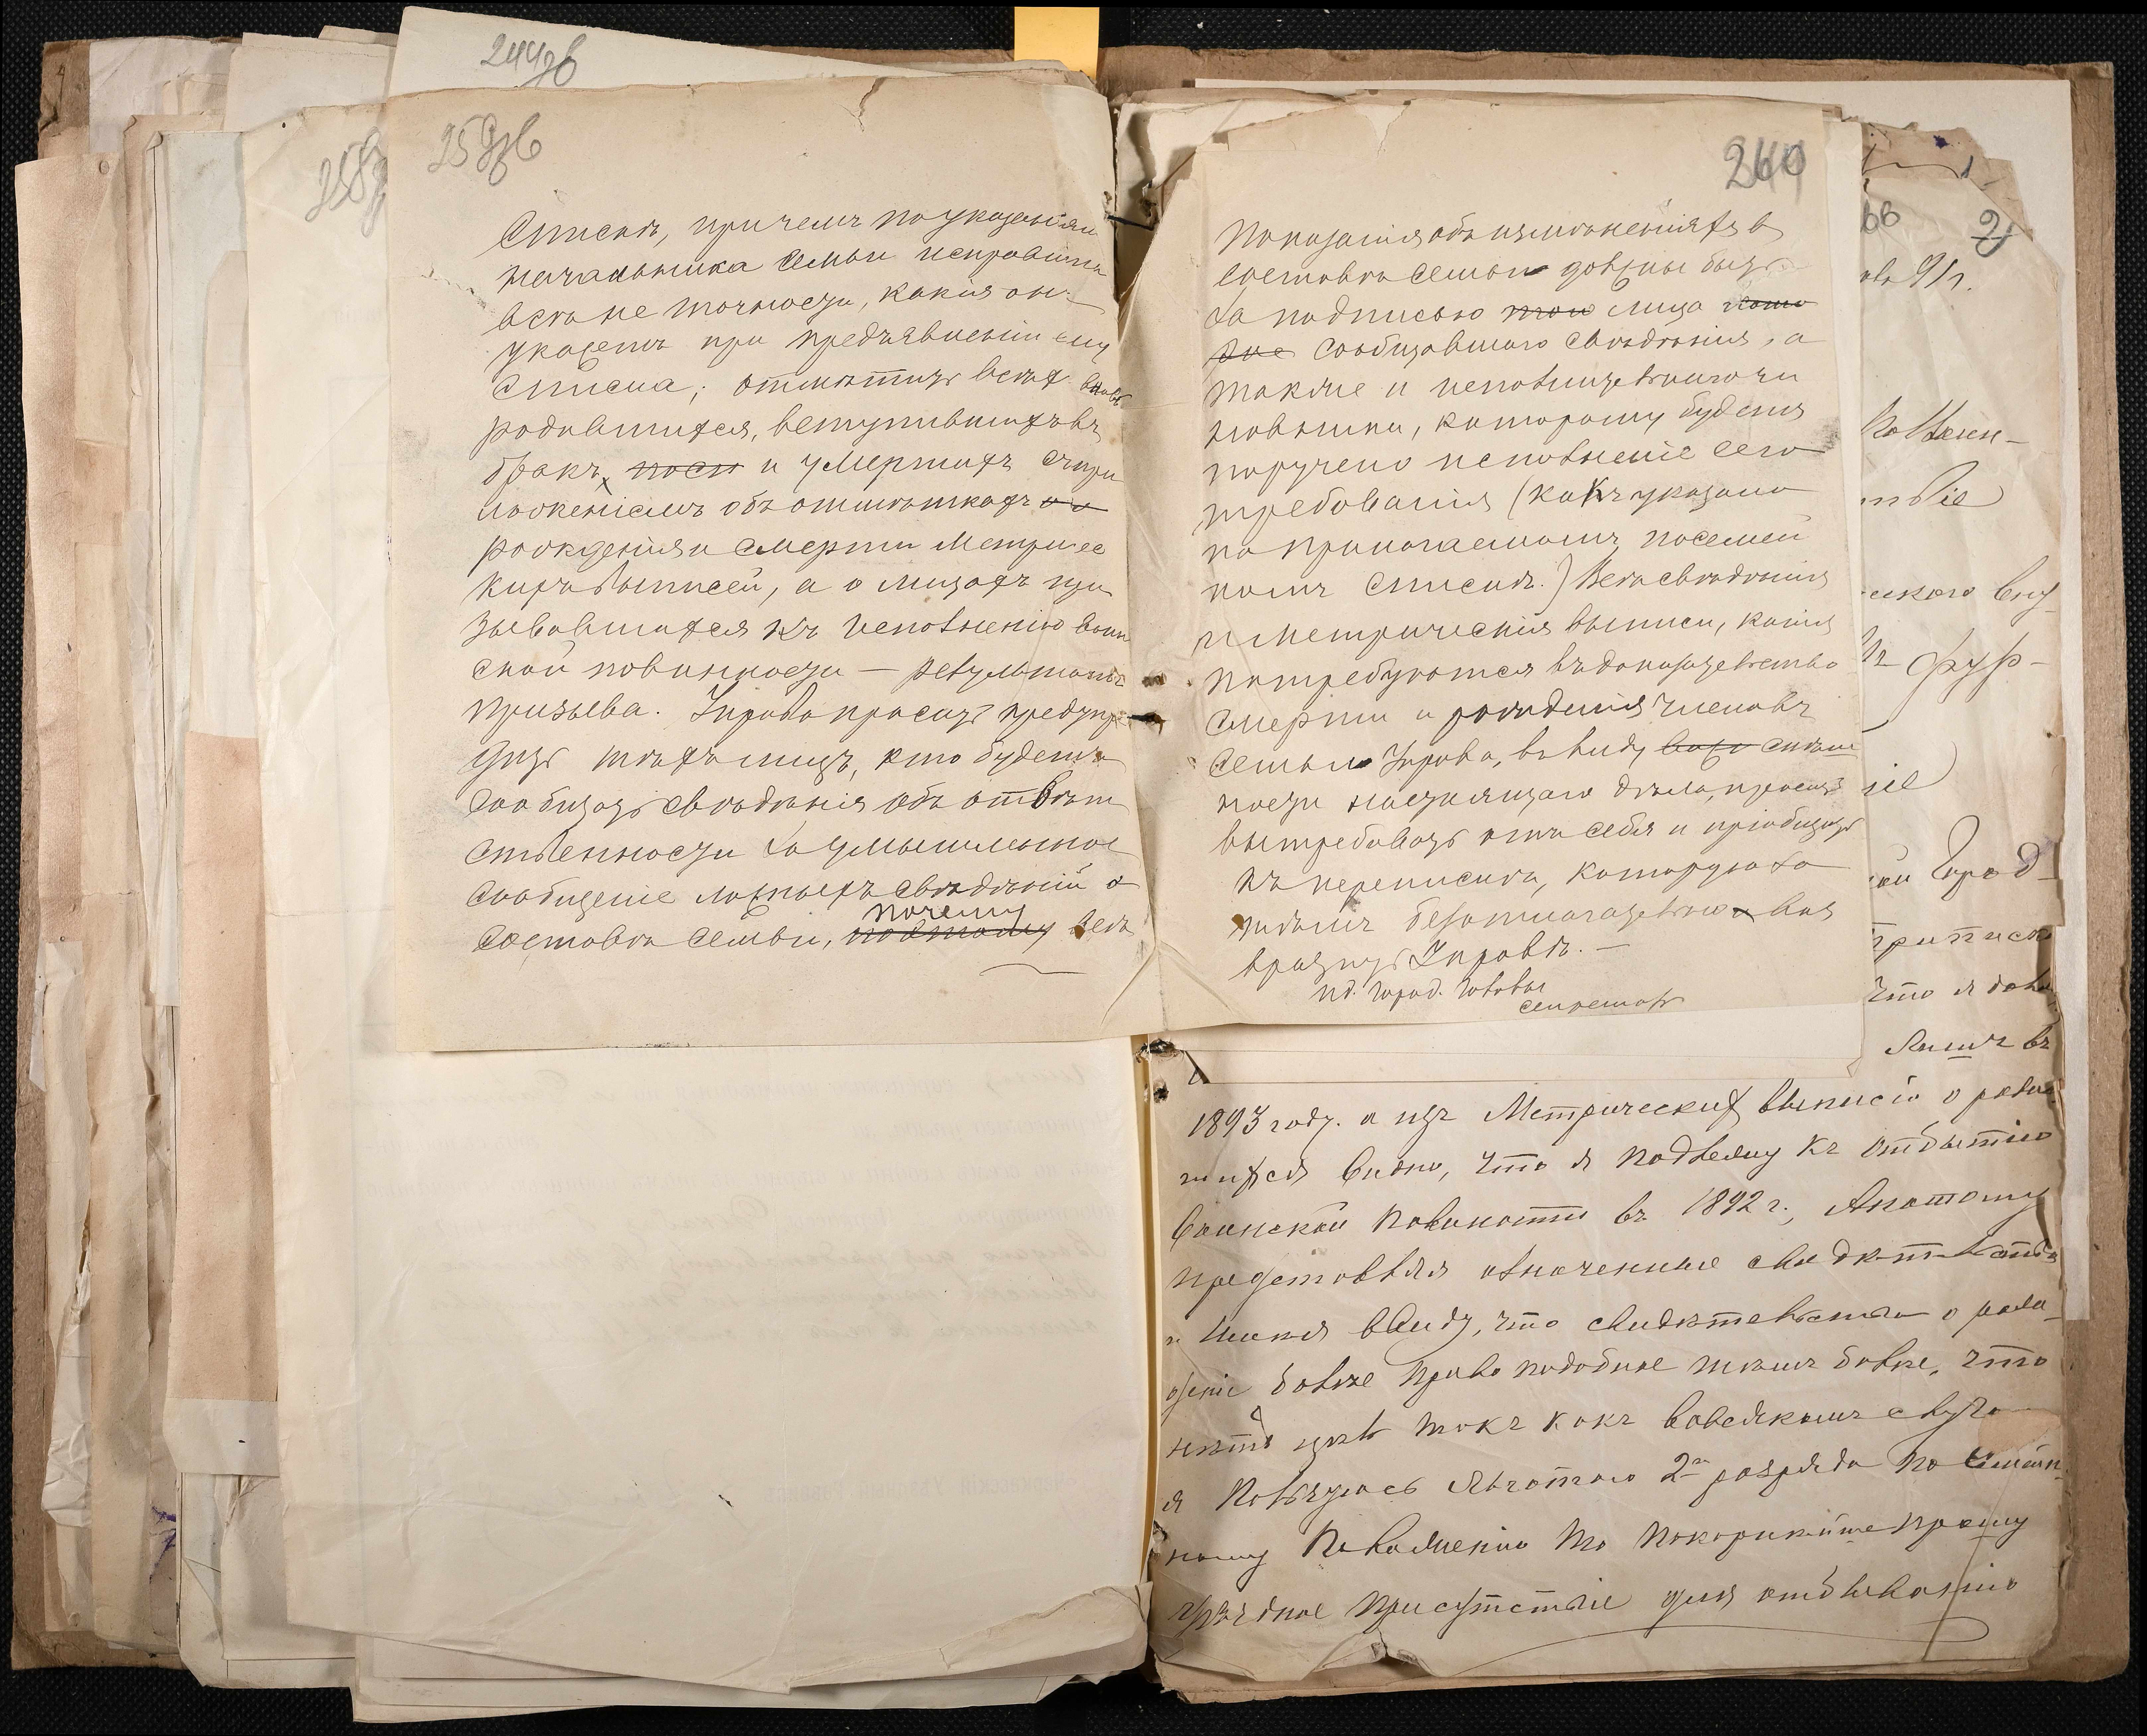 244об
259об
258
Списокъ, при чемъ по указаніямъ
начальника семьи исправить
всѣ не точности, какія онъ
укажетъ при предъявленіи ему
списка; отмѣтить всѣхъ вновь
родившихся, вступившихъ въ
бракъ, посл и умершихъ съ при
ложеніемъ объ отмѣткахъ о о
рожденія и смерти метричес
кихъ выписей, а о лицахъ при
зывавшихся къ исполненію воин
ской повинности — результатъ
призыва. Управа проситъ предупре
дить тѣхъ лицъ, кто будетъ
сообщать свѣдѣнія объ отвѣт
ственности за умышленное
сообщеніе ложныхъ свѣдѣній о
почему
составѣ семьи, поэтому всѣ
260
показанія объ измѣненіяхъ въ
составѣ семьи должны быть
за подписью того лица
сообщавшаго свѣдѣнія, а
также и исполнительного чи
новника, которому будетъ
поручено исполненіе сего
требованія (какъ указано
на прилагаемомъ посемей
номъ спискѣ.) Всѣ свѣдѣнія
и метрическія выписи, какія
потребуются въ доказательство
смерти и рожденія членовъ
семьи Управа, въ виду спѣш
ности настоящаго дѣла, проситъ
вытребовать отъ себя и пріобщить
къ перепискѣ, которую за
тѣмъ безотлагательно воз
вратить Управѣ. —
И.д. Город. Головы
секретарь
2
91г.
твіе
скаго
Город-
приписк
что я
въ
1893 году. а изъ Метрическихъ выписіо о родив
шихся видно, что я подлежу къ отбытію
воинской повиности въ 1892 г., Апотому
представляя означенные свидѣтельства
и имѣя ввиду, что свидѣтельства о рож
деніе болѣе правоподобные тѣмъ болѣе, что
нѣтъ цѣль такъ какъ вовсякомъ случа
я пользуюсь льготою 2го разряда по Семѣй
ному Положенію То покорнѣйше прошу
Уѣздное присутствіе для отбыванію